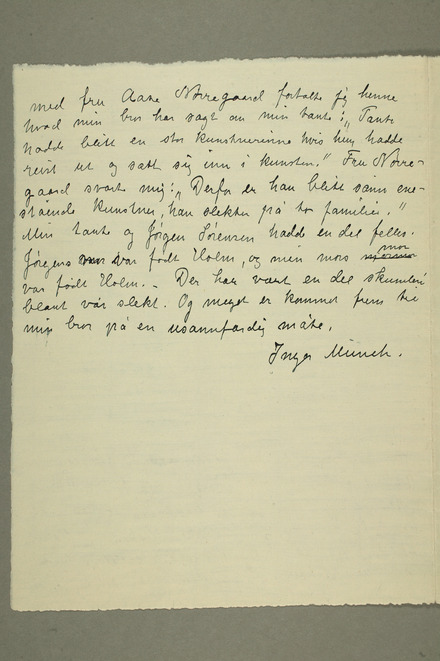 med fru Aase Nørregaard fortalte jeg henne
hvad min bror har sagt om min tante: „Tante
hadde blitt en stor kunstnerinne hvis hun hadde
reist ut og satt sig inn i kunsten." Fru Nørre-
gaard svarte mig: „Derfor er han blitt sånn ene-
stående kunstner, han slekter på to familier."
Min tante og Jørgen Sørensen hadde en del felles.
Jørgens mor var født Holm, og min mors mor
var født Holm. – Der har vært en del skumleri
blant vår slekt. Og meget er kommet frem til
min bror på en usannferdig måte.
Inger Munch.